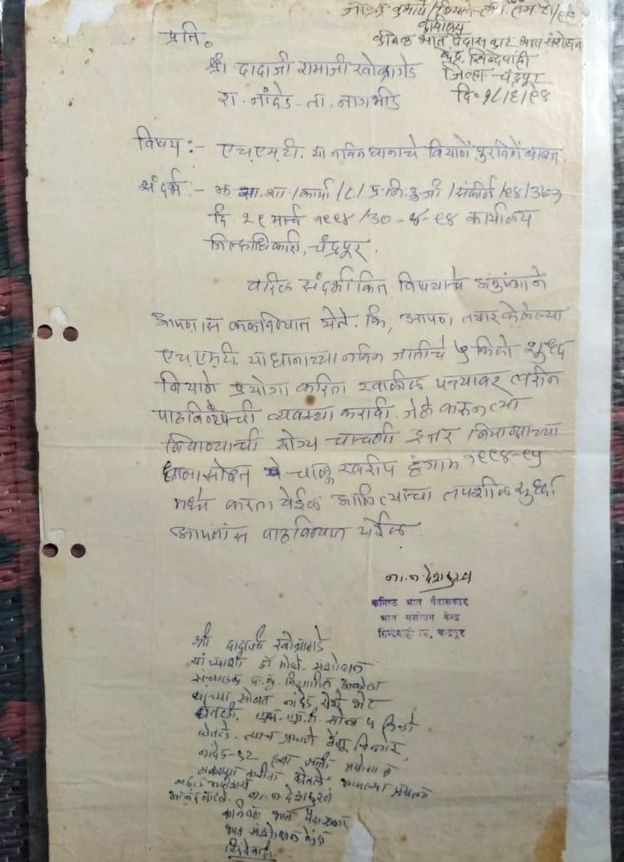 कार्यालय
कनिष्ठ भात पैदासकार भात संशोधन
केंद्र, सिन्देवाही
जिल्हा - चंद्रपूर
दि० १८/६/९४
प्रति.
श्री. दादाजी रामाजी खोब्रागडे
रा. नांदेड - ता. नागभीड
विषय :- एचएमटी. या नविन धानाचे बियाणे पुरविणे बाबत.
संदर्भ :- सा.शा./कार्या/८/ /९४/
दि २९ मार्च १९९४/३०-४-९४ कार्यालय
जिल्हाधिकारी, चंद्रपूर.
वरिल संदर्भांकित विषयाचे अनुषंगाने
आपणास कळविण्यात येते. कि, आपण तयार केलेल्या
एच.एम.टी. या धानाच्या नविन जातीचे ५ किलो शुध्द
बियाणे प्रयोगा करिता खालील पत्त्यावर त्वरीत
पाठविण्याची व्यवस्था करावी. जेणे करून त्या
बियाण्याची योग्य चाचणी इतर बियाण्याच्या
धानासोबत चालू खरीप हंगाम १९९४-९५
मध्ये करता येईल आणि त्यांचा तपशील सुध्दा
आपणांस पाठविण्यात येईल.
ना. न. देशमुख
कनिष्ठ भात पैदासकार
भात संशोधन केन्द्र
सिन्देवाही जि. चन्द्रपूर
श्री दादाजी खोब्रागडे
यांच्याशी डॉ मोघे. संशोधन
संचालक
यांच्या सोबत नांदेड येथे भेट
घेतली. एच. एम. टी सोना ५ किलो
घेतले. त्याच प्रमाणे
नांदेड-
ना. न. देशमुख
कनिष्ठ भात पैदासकार
भात संशोधन केंद्र
सिंदेवाही